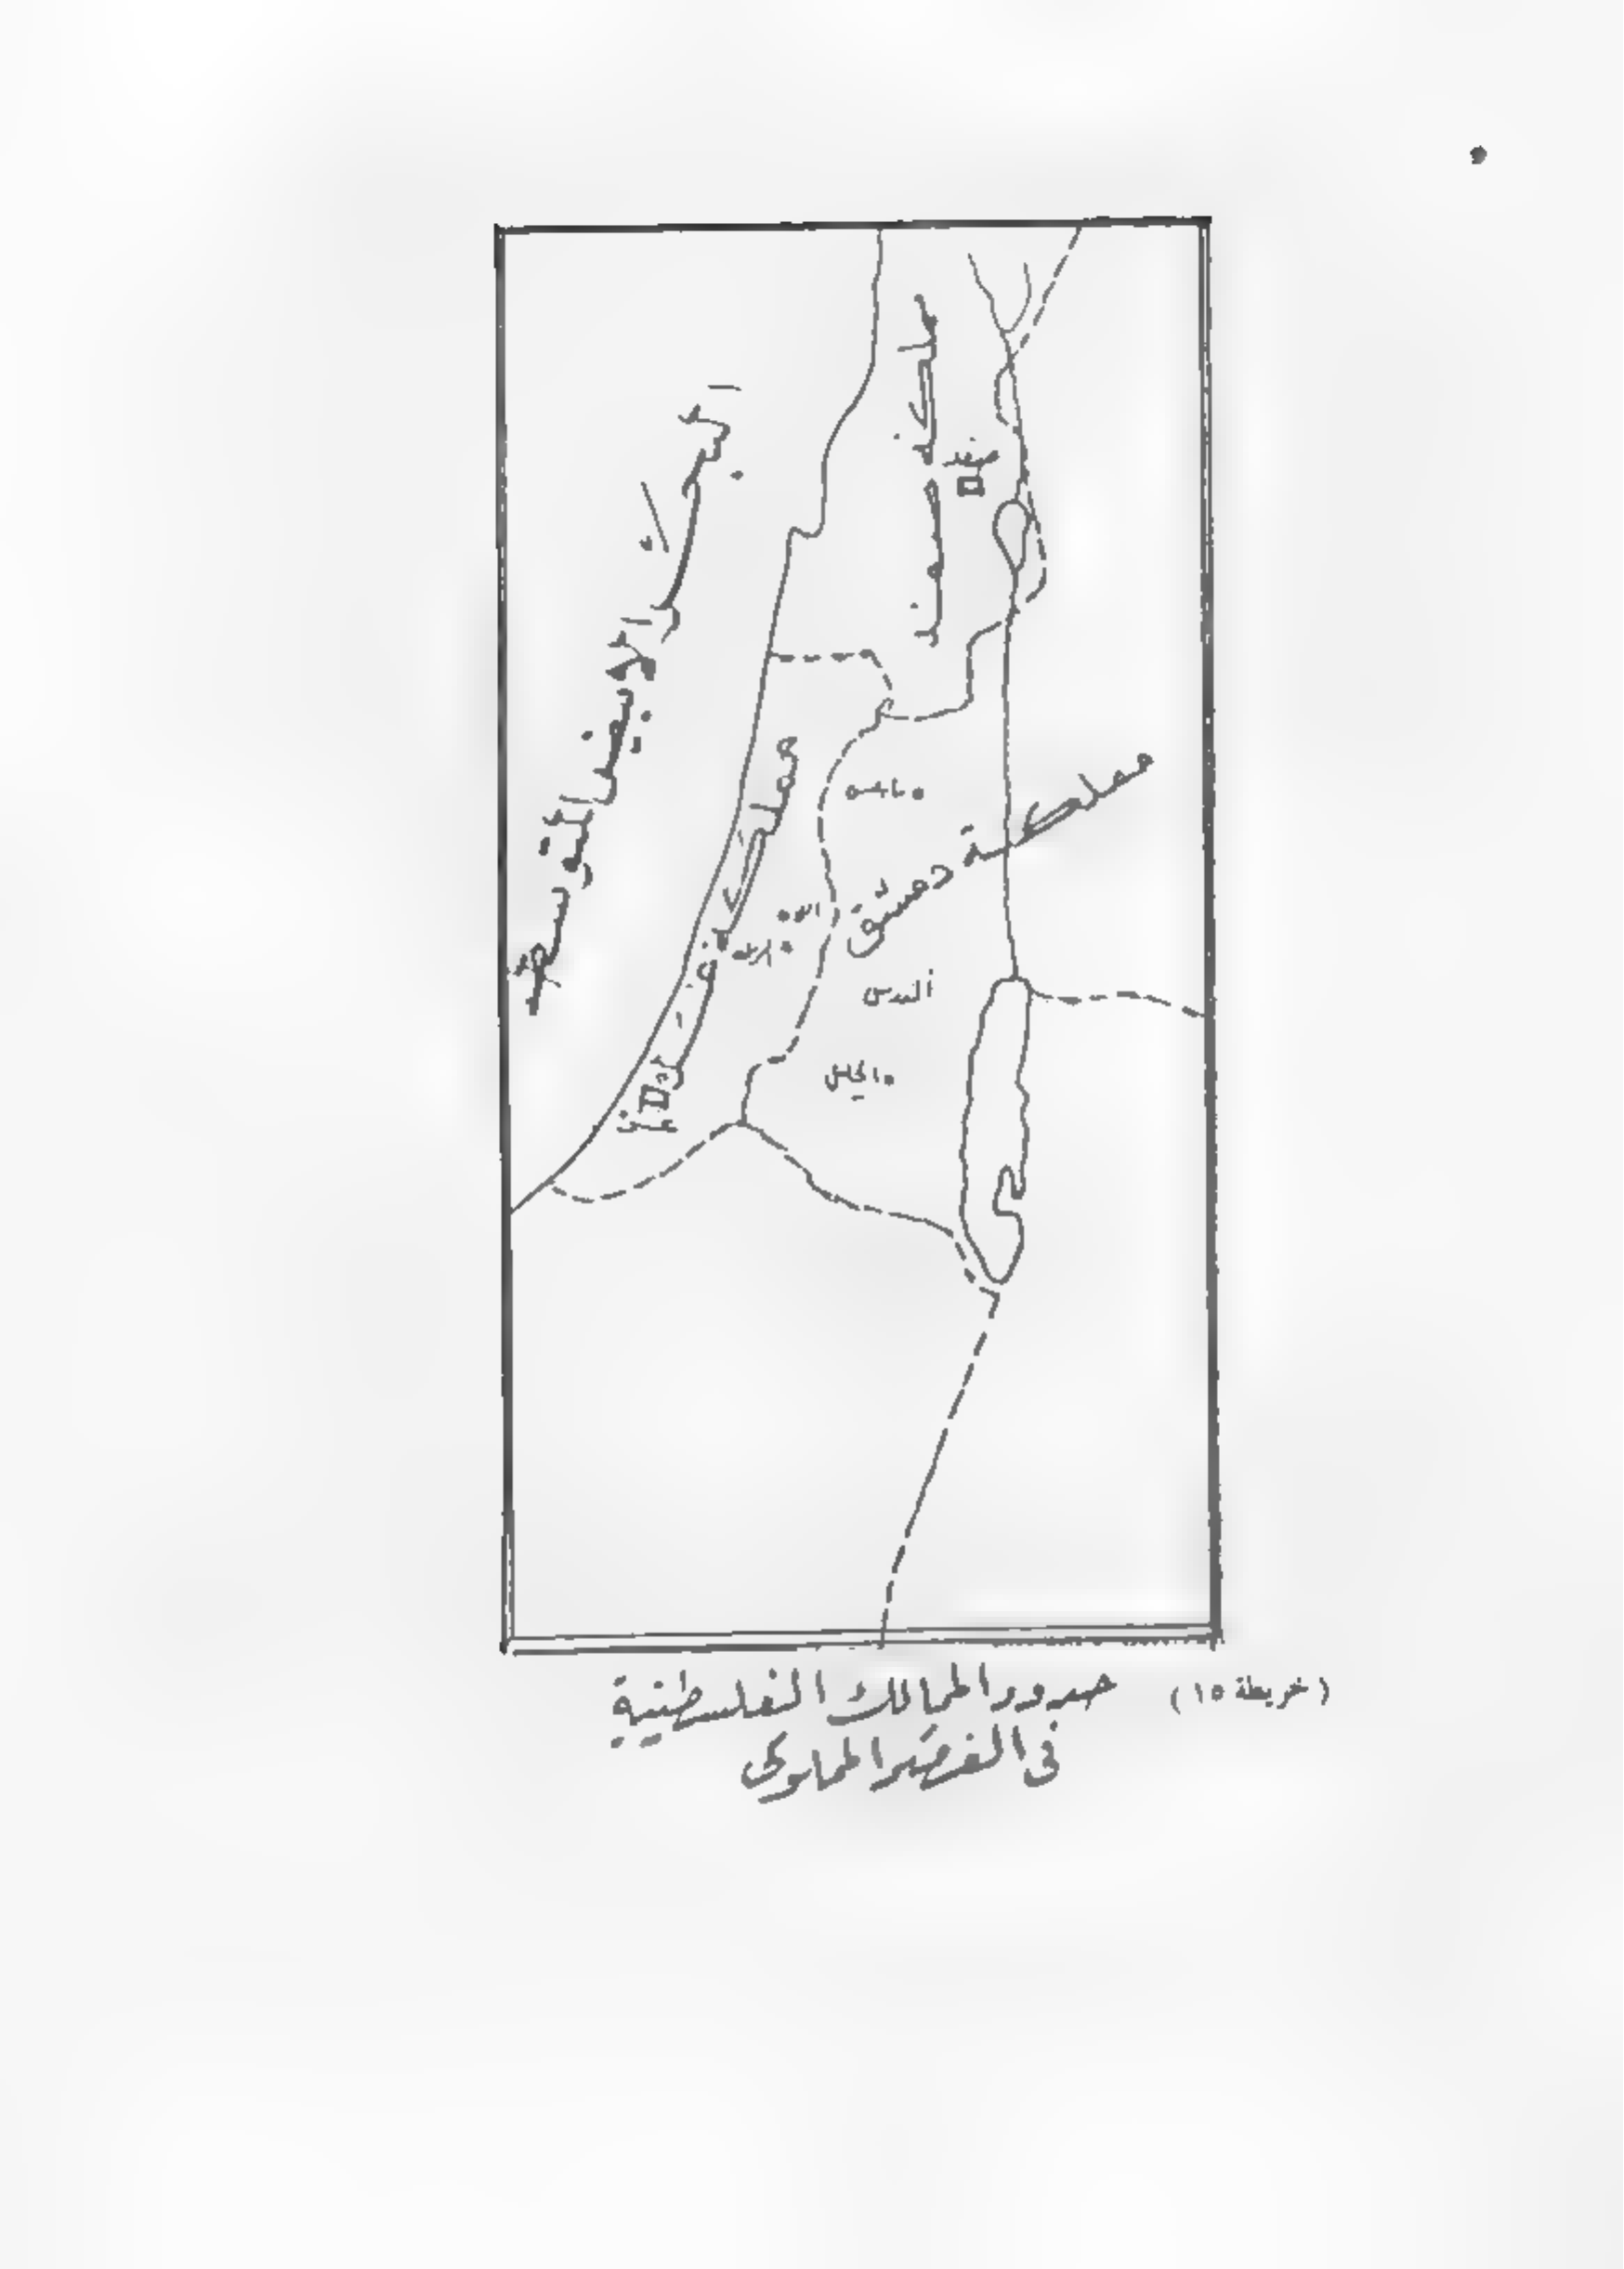 البحر الأبيض المتوسط
مملكة صفد
صفد
مملكة دمشق
مملكة غزة
اللد
الرملة
القدس
الخليل
غزة
(خريطة ١٥) حدود الممالك الفلسطينية
في العصر المملوكي